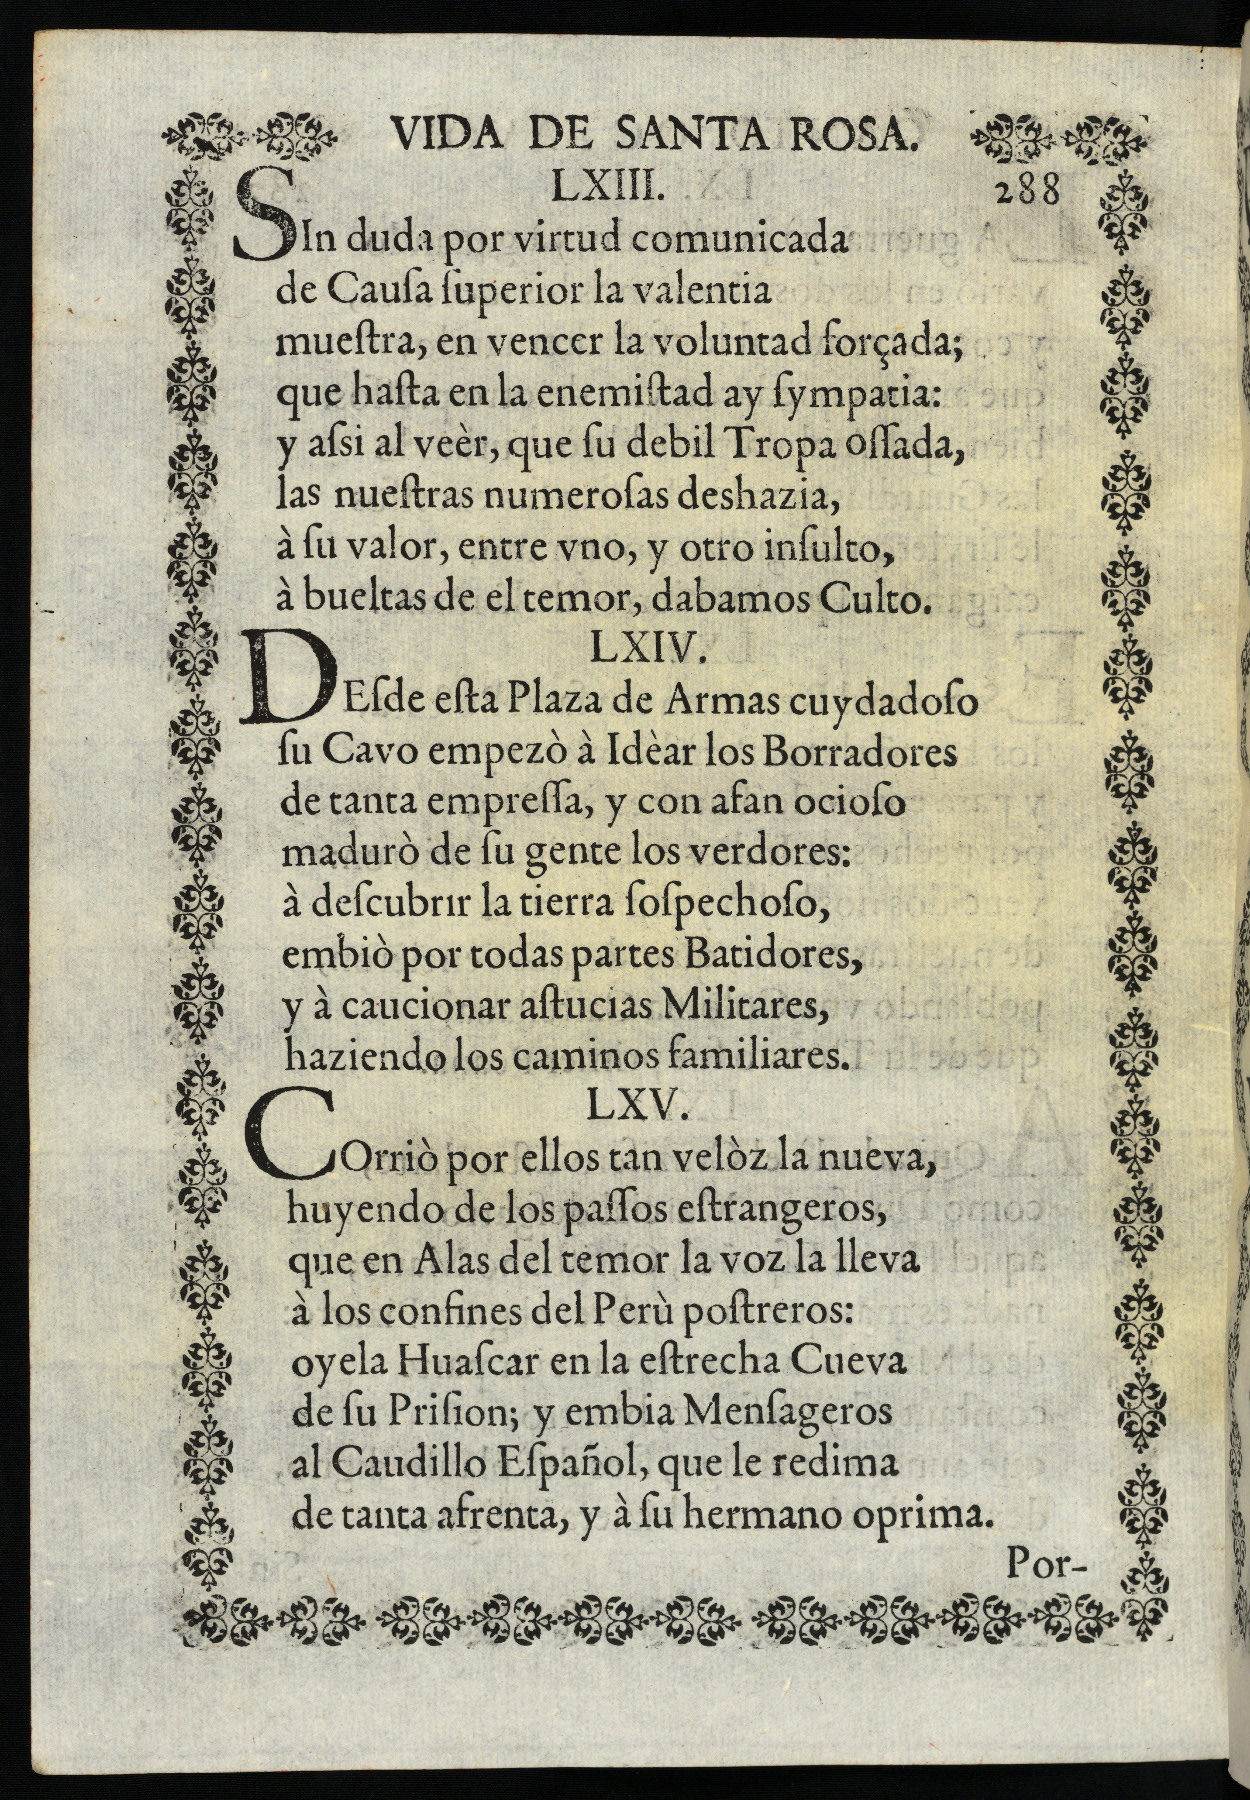 VIDA DE SANTA ROSA.
LXIII. 288
SIn duda por virtud comunicada
de Cauſa ſuperior la valentia
mueſtra, en vencer la voluntad forçada;
que haſta en la enemiſtad ay ſympatia:
y aſsi al veèr, que ſu debil Tropa oſſada,
las nueſtras numeroſas deshazia,
à ſu valor, entre vno, y otro inſulto,
à bueltas de el temor, dabamos Culto.
LXIV.
DEſde eſta Plaza de Armas cuydadoſo
ſu Cavo empezò à Idèar los Borradores
de tanta empreſſa, y con afan ocioſo
madurò de ſu gente los verdores:
à deſcubrir la tierra ſoſpechoſo,
embiò por todas partes Batidores,
y à caucionar aſtucias Militares,
haziendo los caminos familiares.
LXV.
COrriò por ellos tan velòz la nueva,
huyendo de los paſſos eſtrangeros,
que en Alas del temor la voz la lleva
à los confines del Perù poſtreros:
oyela Huaſcar en la eſtrecha Cueva
de ſu Priſion; y embia Menſageros
al Caudillo Eſpañol, que le redima
de tanta afrenta, y à ſu hermano oprima.
Por-